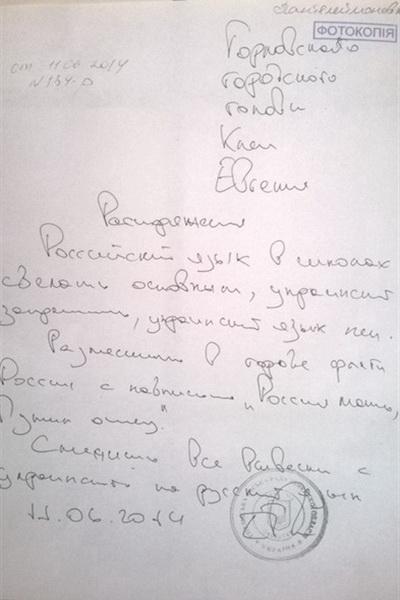 ФОТОКОПІЯ
от 11 06 2014
N 154-р
городского
голови
Клеп
Евгения
Распоряжения
Российский язык в школах
сделать основным, украинский
запретить, украинский язык
Разместить в городе флаги
России с надписью "Россия мать,
Путин отец."
Сменить все вывески с
украинский на русский язык
11.06.2014